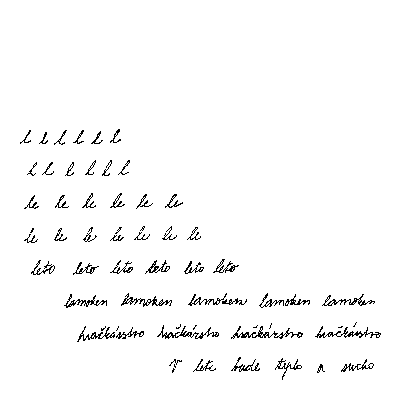 l l l l l l
l l l l l l
le le le le le le
le le le le le le le
leto leto leto leto leto leto
lamohen lamohen lamohen lamohen lamohen
hračkárstvo hračkárstvo hračkárstvo hračkárstvo
V lete bude teplo a sucho